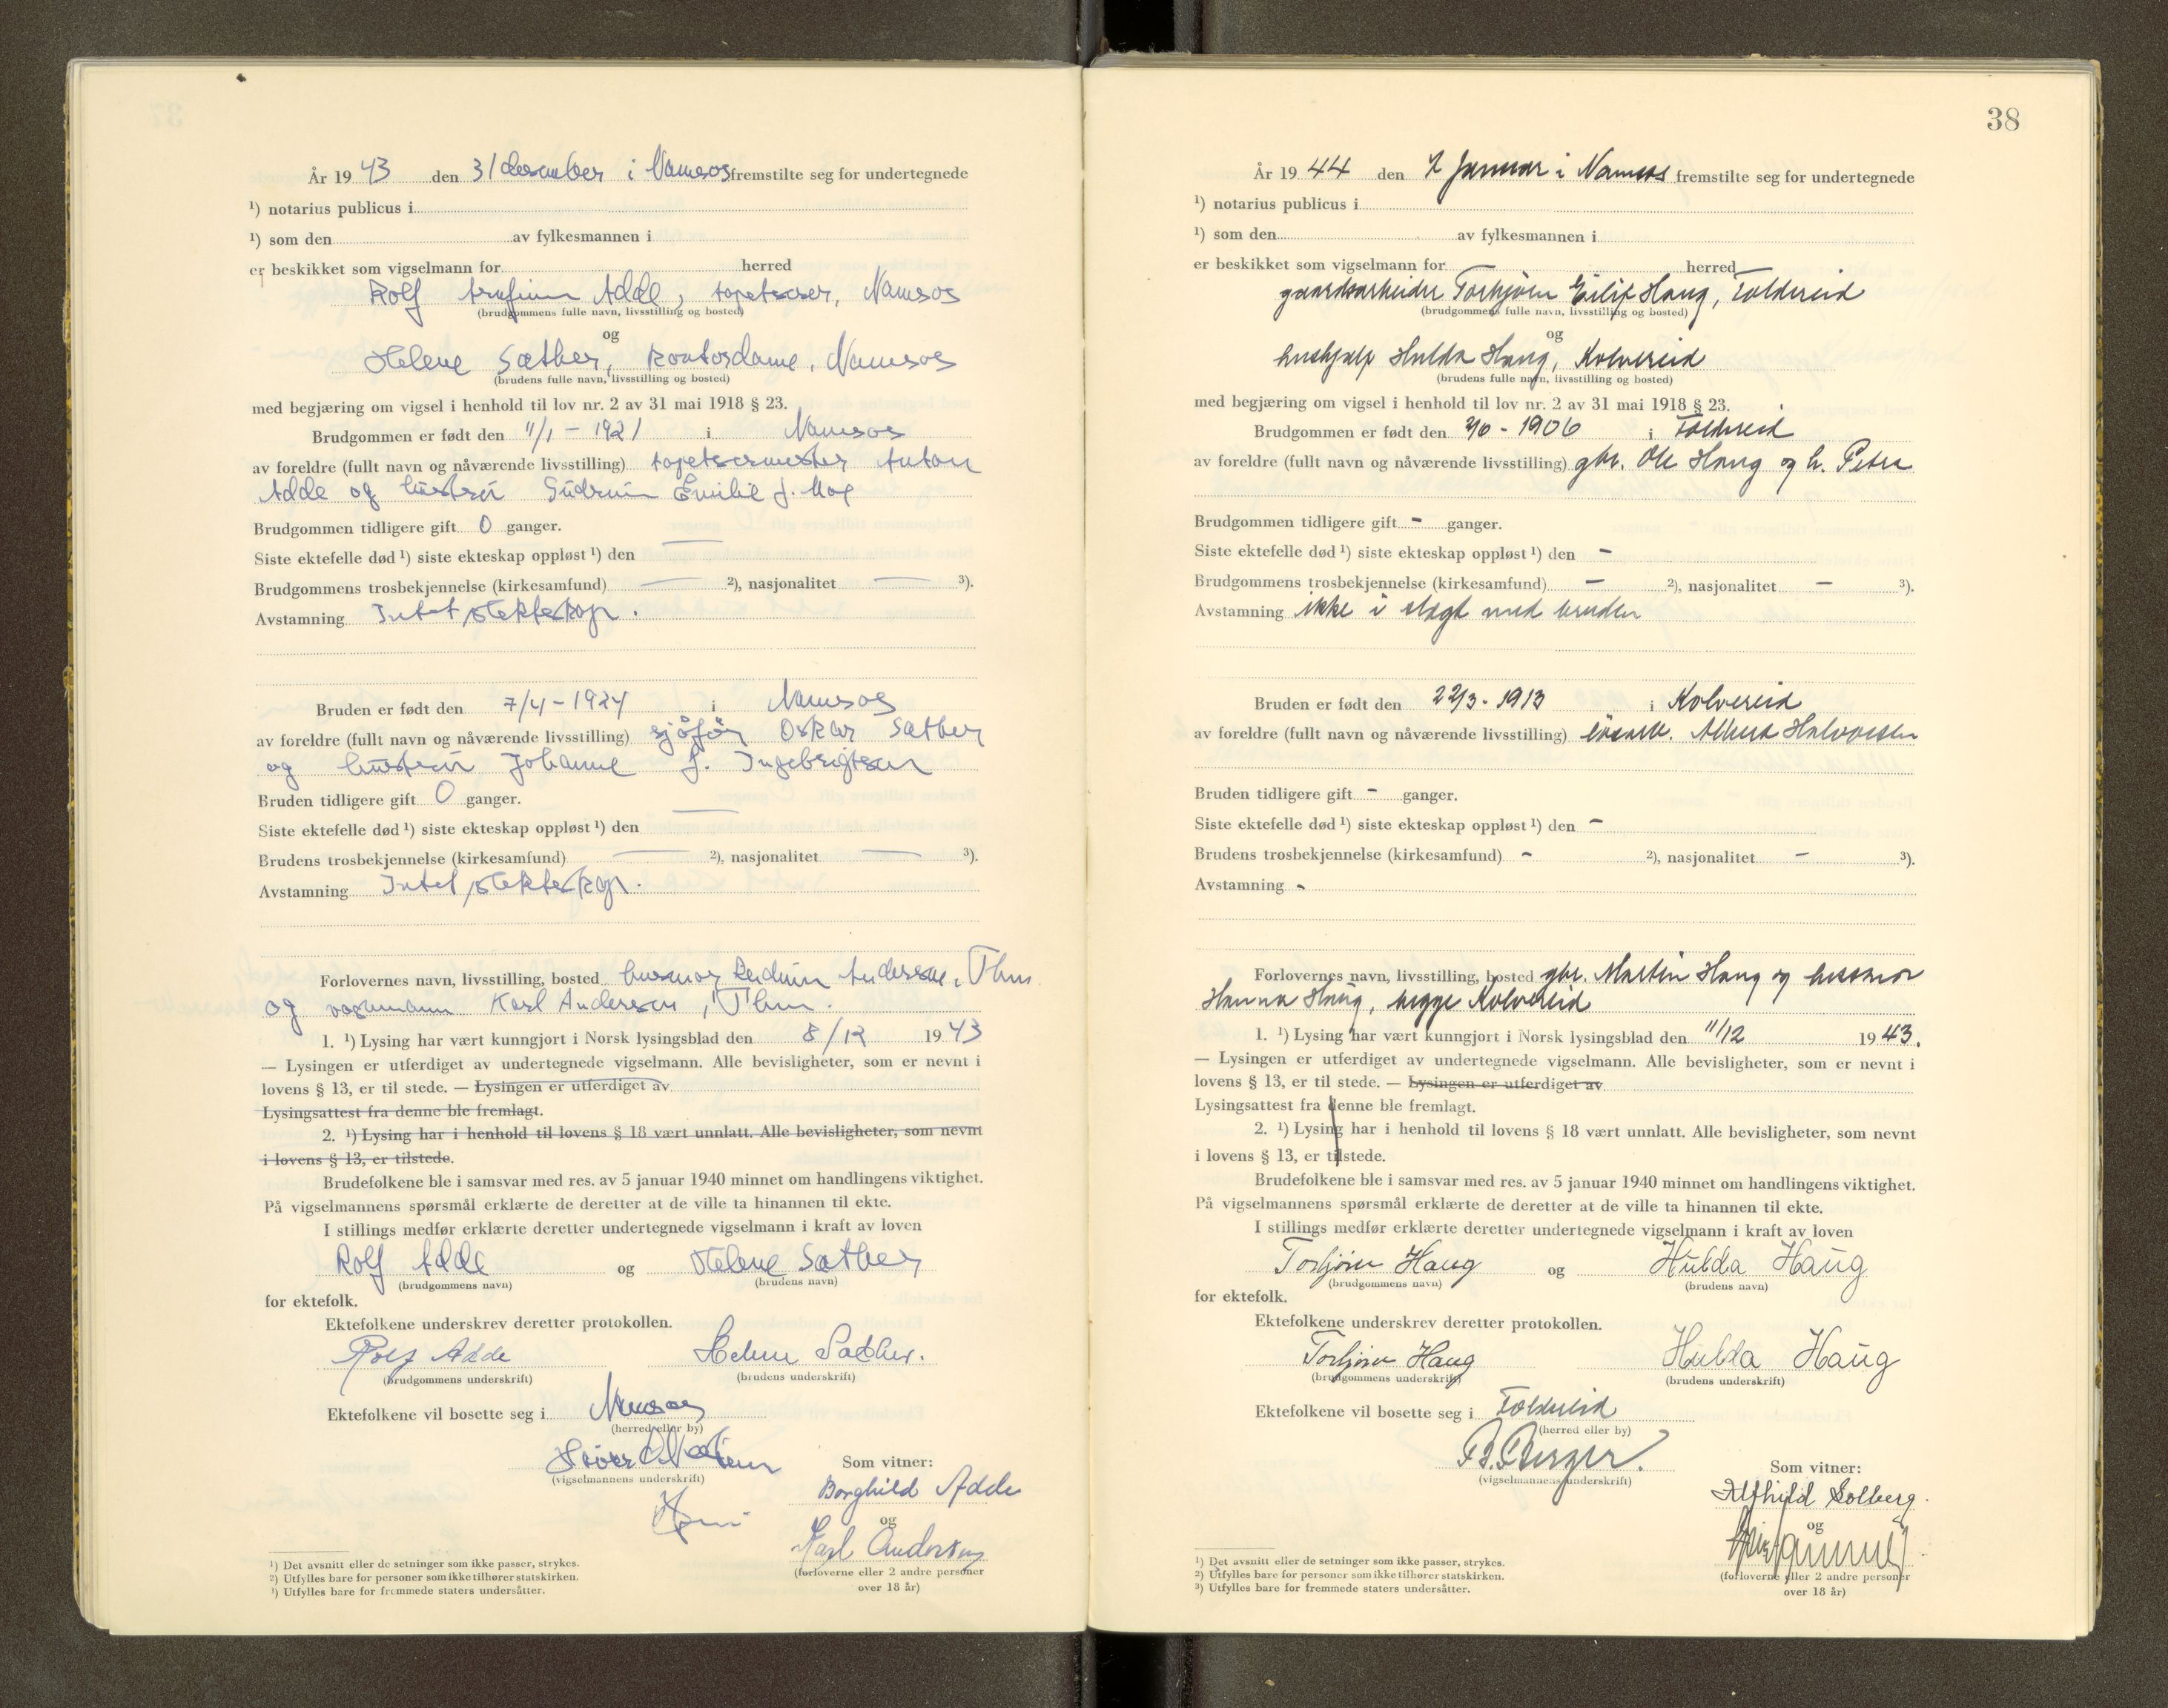 År 1943 den 31 desember i Namsos fremstilte seg for undertegnede
¹) notarius publicus i
¹) som den av fylkesmannen i
er beskikket som vigselmann for herred
Rolf Arnfinn Adde, tapetserer, Namsos
(brudgommens fulle navn, livsstilling og bosted)
og
Helene Sæther, kontordame, Namsos
(brudens fulle navn, livsstilling og bosted)
med begjæring om vigsel i henhold til lov nr. 2 av 31 mai 1918 § 23.
Brudgommen er født den 11/1 - 1921 i Namsos
av foreldre (fullt navn og nåværende livsstilling) tapetserermester Anton
Adde og hustru Gudrun Emilie f. Moe
Brudgommen tidligere gift 0 ganger.
Siste ektefelle død ¹) siste ekteskap oppløst ¹) den —
Brudgommens trosbekjennelse (kirkesamfund) — ²), nasjonalitet — ³).
Avstamning Intet slektskap.
Bruden er født den 7/4 - 1924 i Namsos
av foreldre (fullt navn og nåværende livsstilling) sjåfør Oskar Sæther
og hustru Johanne f. Ingebrigtsen
Bruden tidligere gift 0 ganger.
Siste ektefelle død ¹) siste ekteskap oppløst ¹) den —
Brudens trosbekjennelse (kirkesamfund) — ²), nasjonalitet — ³).
Avstamning Intet slektskap.
Forlovernes navn, livsstilling, bosted husmor Andersen, Thm.
og Karl Andersen, Thm.
1. ¹) Lysing har vært kunngjort i Norsk lysingsblad den 8/12 1943
— Lysingen er utferdiget av undertegnede vigselmann. Alle bevisligheter, som er nevnt i
lovens § 13, er til stede. — Lysingen er utferdiget av
Lysingsattest fra denne ble fremlagt.
2. ¹) Lysing har i henhold til lovens § 18 vært unnlatt. Alle bevisligheter, som nevnt
i lovens § 13, er tilstede.
Brudefolkene ble i samsvar med res. av 5 januar 1940 minnet om handlingens viktighet.
På vigselmannens spørsmål erklærte de deretter at de ville ta hinannen til ekte.
I stillings medfør erklærte deretter undertegnede vigselmann i kraft av loven
Rolf Adde og Helene Sæther
(brudgommens navn) (brudens navn)
for ektefolk.
Ektefolkene underskrev deretter protokollen.
Rolf Adde Helene Sæther.
(brudgommens underskrift) (brudens underskrift)
Ektefolkene vil bosette seg i Namsos
(herred eller by)
(vigselmannens underskrift)
Som vitner:
Borghild Adde
og
Karl Andersen
(forloverne eller 2 andre personer
over 18 år)
¹) Det avsnitt eller de setninger som ikke passer, strykes.
²) Utfylles bare for personer som ikke tilhører statskirken.
³) Utfylles bare for fremmede staters undersåtter.
38
År 1944 den januar i Namsos fremstilte seg for undertegnede
¹) notarius publicus i
¹) som den av fylkesmannen i
er beskikket som vigselmann for herred
gaardsarbeider Torbjørn Eilif Haug, Foldereid
(brudgommens fulle navn, livsstilling og bosted)
og
hushjelp Hulda Haug, Kolvereid
(brudens fulle navn, livsstilling og bosted)
med begjæring om vigsel i henhold til lov nr. 2 av 31 mai 1918 § 23.
Brudgommen er født den - 1906 i Foldereid
av foreldre (fullt navn og nåværende livsstilling) gbr. Ole Haug og h. Petra
Brudgommen tidligere gift - ganger.
Siste ektefelle død ¹) siste ekteskap oppløst ¹) den -
Brudgommens trosbekjennelse (kirkesamfund) - ²), nasjonalitet - ³).
Avstamning ikke i slægt med bruden
Bruden er født den 22/3 - 1913 i Kolvereid
av foreldre (fullt navn og nåværende livsstilling) Halvorsen
Bruden tidligere gift - ganger.
Siste ektefelle død ¹) siste ekteskap oppløst ¹) den -
Brudens trosbekjennelse (kirkesamfund) - ²), nasjonalitet - ³).
Avstamning -
Forlovernes navn, livsstilling, bosted gbr. Martin Haug og husmor
Hanna Haug, begge Kolvereid
1. ¹) Lysing har vært kunngjort i Norsk lysingsblad den 11/12 1943.
— Lysingen er utferdiget av undertegnede vigselmann. Alle bevisligheter, som er nevnt i
lovens § 13, er til stede. — Lysingen er utferdiget av
Lysingsattest fra denne ble fremlagt.
2. ¹) Lysing har i henhold til lovens § 18 vært unnlatt. Alle bevisligheter, som nevnt
i lovens § 13, er tilstede.
Brudefolkene ble i samsvar med res. av 5 januar 1940 minnet om handlingens viktighet.
På vigselmannens spørsmål erklærte de deretter at de ville ta hinannen til ekte.
I stillings medfør erklærte deretter undertegnede vigselmann i kraft av loven
Torbjørn Haug og Hulda Haug
(brudgommens navn) (brudens navn)
for ektefolk.
Ektefolkene underskrev deretter protokollen.
Torbjørn Haug Hulda Haug
(brudgommens underskrift) (brudens underskrift)
Ektefolkene vil bosette seg i Foldereid
(herred eller by)
B. Berger.
(vigselmannens underskrift)
Som vitner:
Alfhild Solberg.
og
(forloverne eller 2 andre personer
over 18 år)
¹) Det avsnitt eller de setninger som ikke passer, strykes.
²) Utfylles bare for personer som ikke tilhører statskirken.
³) Utfylles bare for fremmede staters undersåtter.